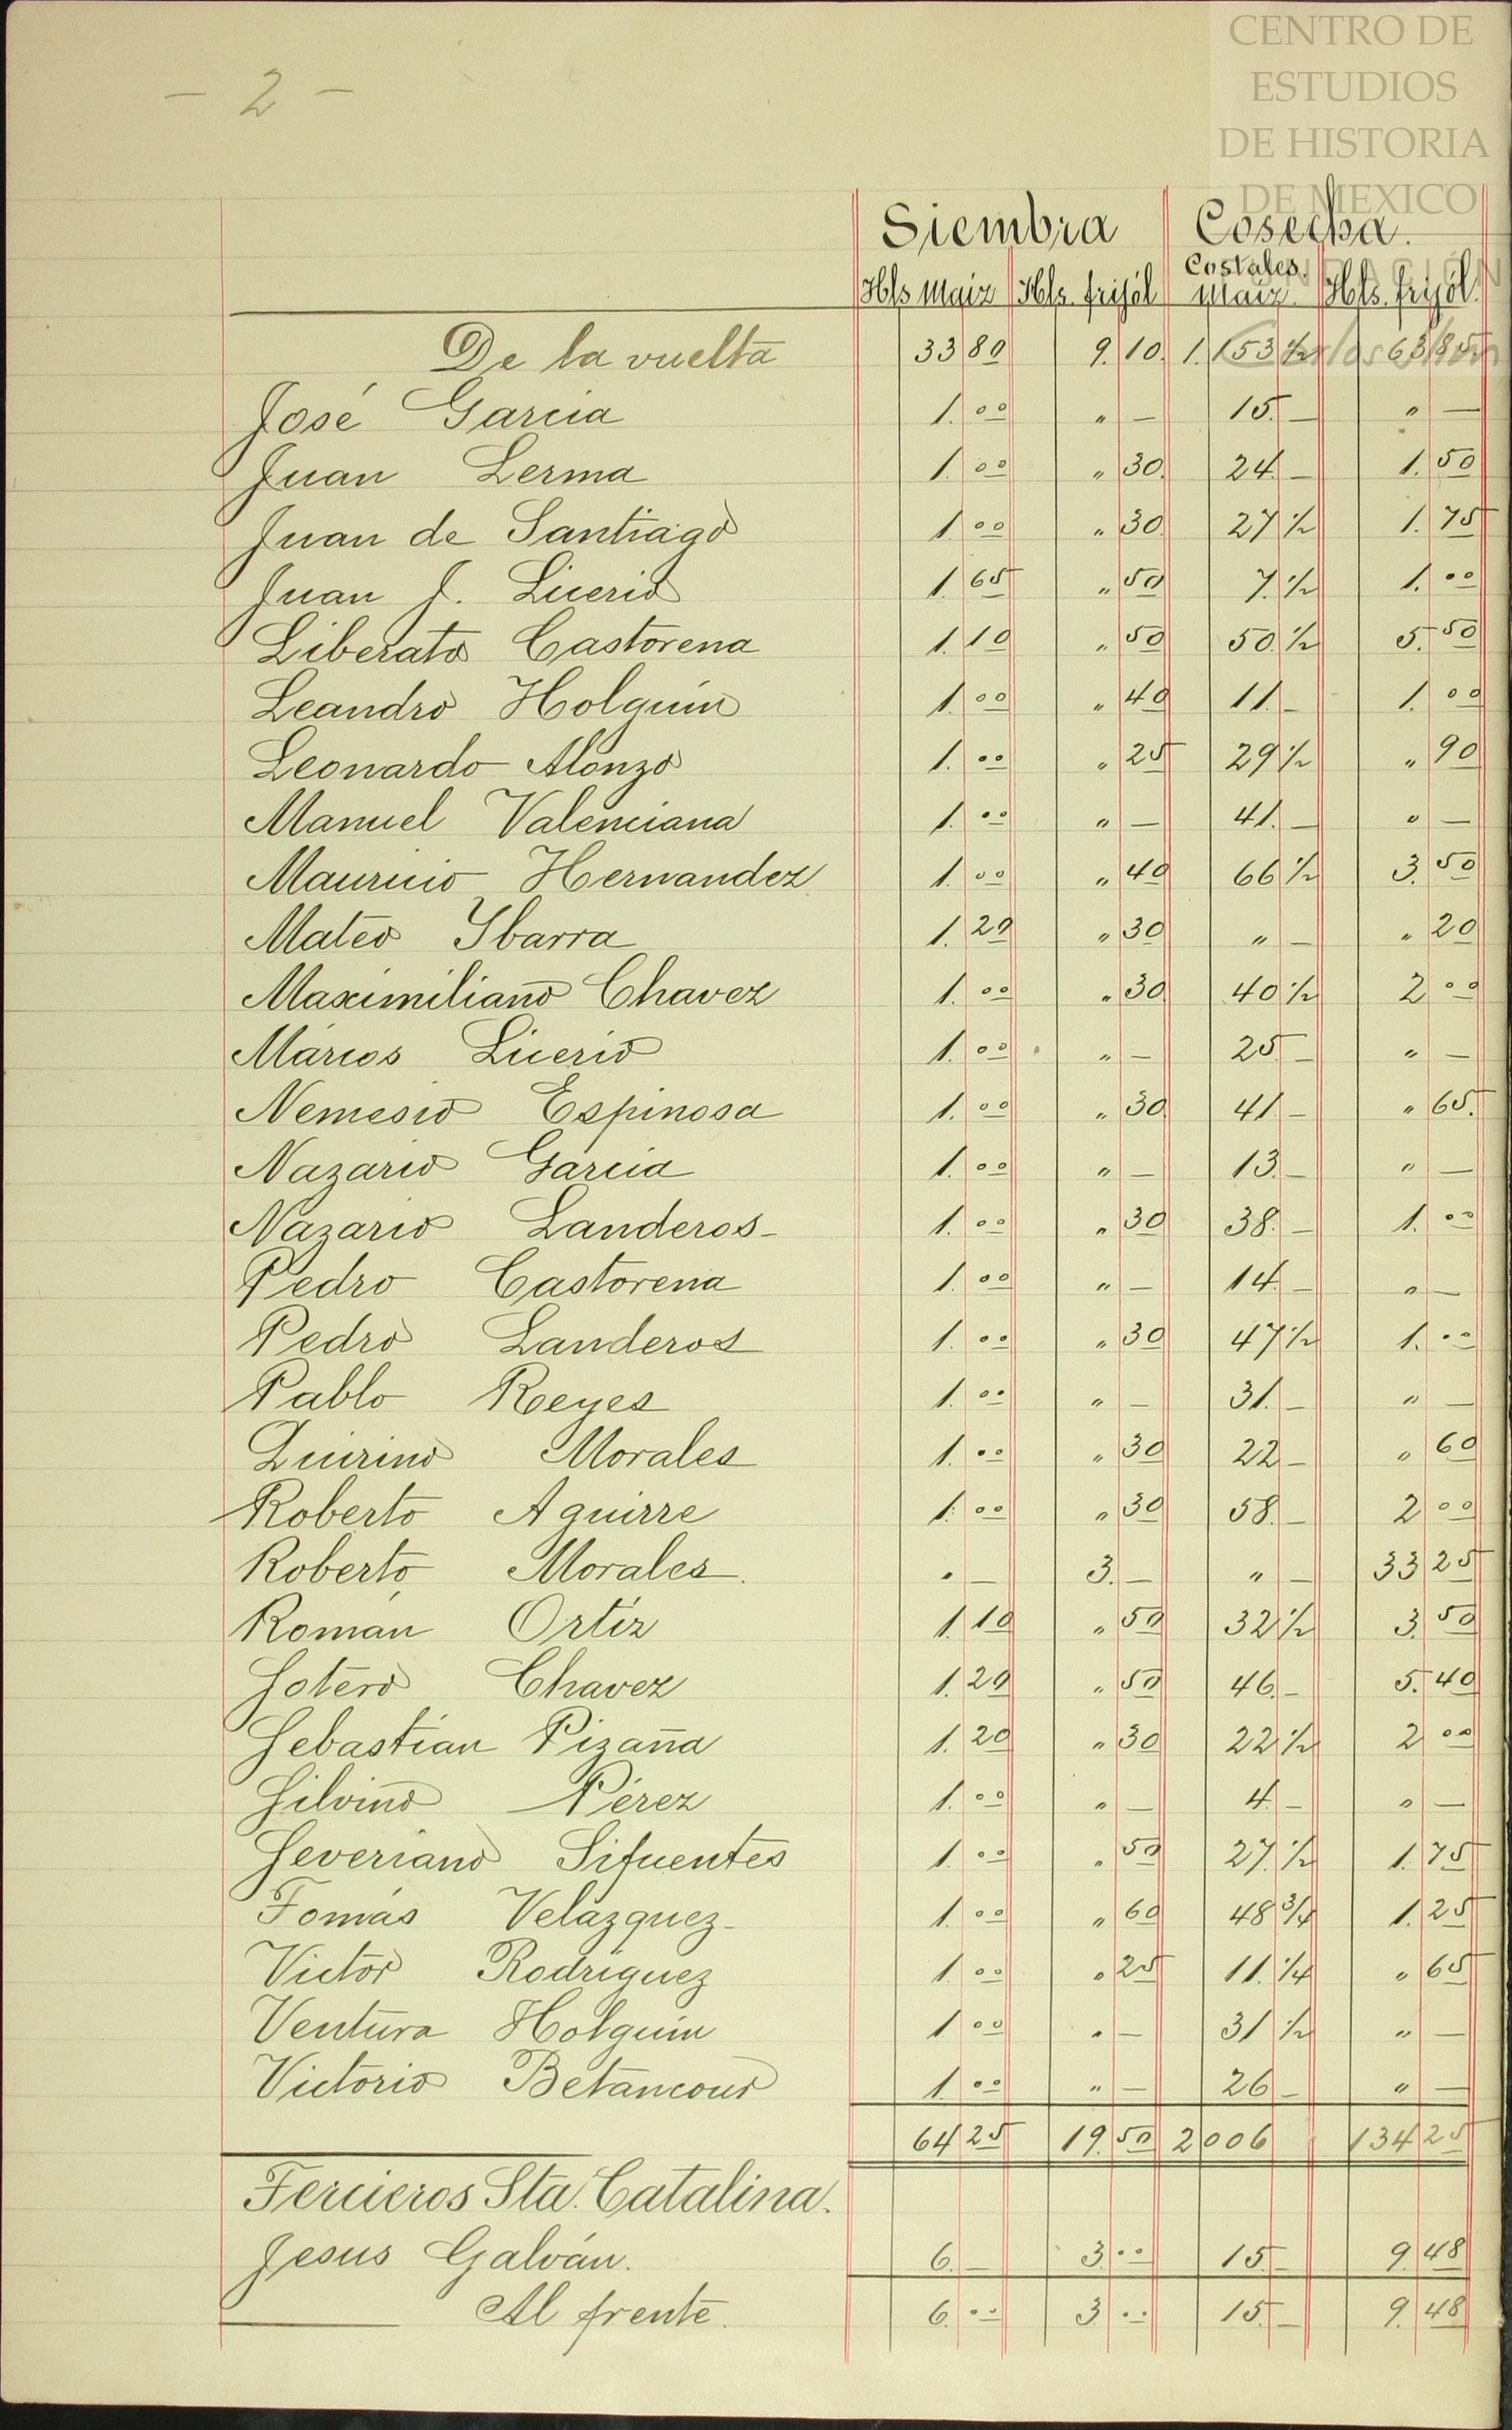 CENTRO DE
ESTUDIOS
DE HISTORIA
DE MEXICO
- 2 -
Siembra Cosecha.
Hls Maiz Hls. frijól Costales Maiz. Hls. frijól.
De la vuelta 33 80 9. 10. 1.153 1/2 63 85
José Garcia 1. 00 " — 15. — " —
Juan Lerma 1. 00 " 30. 24. — 1. 50
Juan de Santiago 1. 00 " 30. 27 1/2 1. 75
Juan J. Licerio 1. 65 " 50 7. 1/2 1. 00
Liberato Castorena 1. 10 " 50 50. 1/2 5. 50
Leandro Holguin 1. 00 " 40 11. — 1. 00
Leonardo Alonzo 1. 00 " 25 29 1/2 " 90
Manuel Valenciana 1. 00 " — 41. — " —
Mauricio Hernandez 1. 00 " 40 66 1/2 3. 50
Mateo Ybarra 1. 20 " 30 " — " 20
Maximiliano Chavez 1. 00 " 30 40 1/2 2 00
Márcos Licerio 1. 00 " — 25 — " —
Nemesio Espinosa 1. 00 " 30 41 — " 65.
Nazario Garcia 1. 00 " — 13. — " —
Nazario Landeros- 1. 00 " 30 38. — 1. 00
Pedro Castorena 1. 00 " — 14. — " —
Pedro Landeros 1. 00 " 30 47 1/2 1. 00
Pablo Reyes 1. 00 " — 31. — " —
Quirino Morales 1. 00 " 30 22 — " 60
Roberto Aguirre 1. 00 " 30 58. — 2 00
Roberto Morales. " — 3. — " — 33 25
Román Ortíz 1. 10 " 50 32 1/2 3. 50
Sotero Chavez 1. 20 " 50 46. — 5. 40
Sebastián Pizaña 1. 20 " 30 22 1/2 2 00
Silvino Pérez 1. 00 " — 4. — " —
Severiano Sifuentes 1. 00 " 50 27. 1/2 1. 75
Tomás Velázquez- 1. 00 " 60 48 3/4 1. 25
Victor Rodríguez 1. 00 " 25 11. 1/4 " 65
Ventura Holguin 1 00 " — 31 1/2 " —
Victorio Betancour 1. 00 " — 26 — " —
64 25 19. 50 2006 134 25
Tercieros Sta. Catalina.
Jesus Galván. 6. — 3. 00 15 — 9. 48
Al frente. 6. 00 3. 00 15. — 9. 48